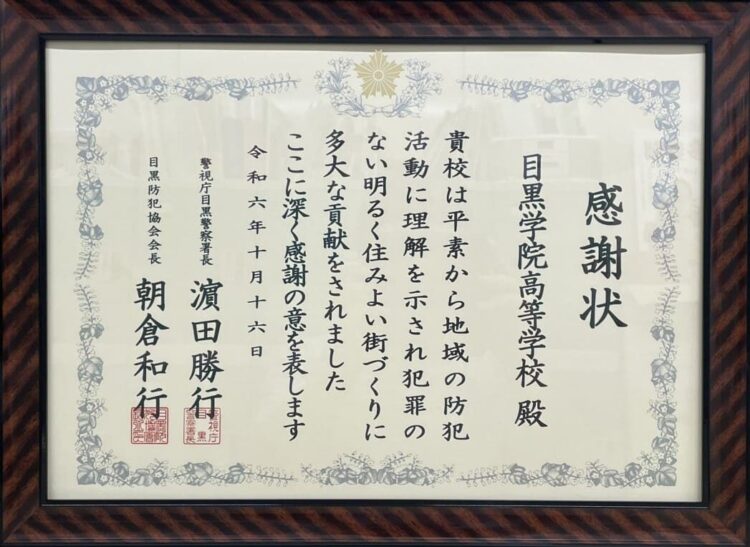 感謝状
目黒学院高等学校 殿
貴校は平素から地域の防犯
活動に理解を示され犯罪の
ない明るく住みよい街づくりに
多大な貢献をされました
ここに深く感謝の意を表します
令和六年十月十六日
警視庁目黒警察署長 濵田勝行
目黒防犯協会会長 朝倉和行